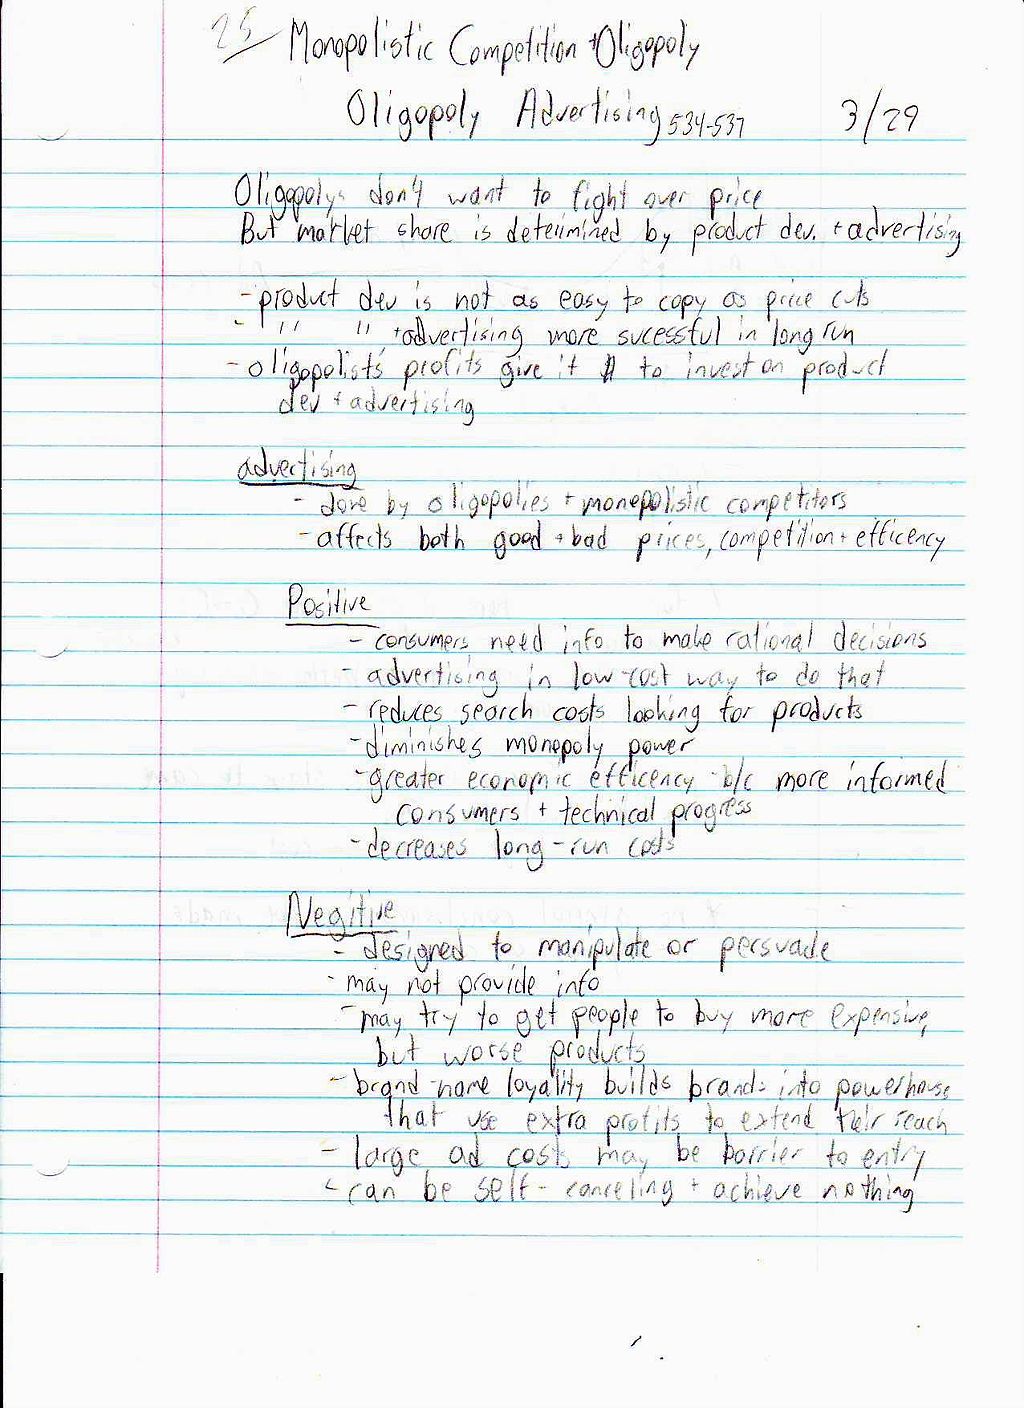 25 Monopolistic Competition + Oligopoly
Oligopoly Advertising 534-537 3/29
Oligopolys don't want to fight over price
But market share is determined by product dev. + advertising
- product dev is not as easy to copy as price cuts
- " " + advertising more sucessful in long run
- oligopolists' profits give it $ to invest on product
dev + advertising
advertising
- done by oligopolies + monopolistic competitors
- affects both good + bad prices, competition + efficency
Positive
- consumers need info to make rational decisions
- advertising in low-cost way to do that
- reduces search costs looking for products
- diminishes monopoly power
- greater economic efficency b/c more informed
consumers + technical progress
- decreases long-run costs
Negitive
- designed to manipulate or persuade
- may not provide info
- may try to get people to buy more expensive,
but worse products
- brand-name loyality builds brands into powerhouse
that use extra profits to extend their reach
- large ad costs may be barrier to entry
- can be self-canceling + achieve nothing